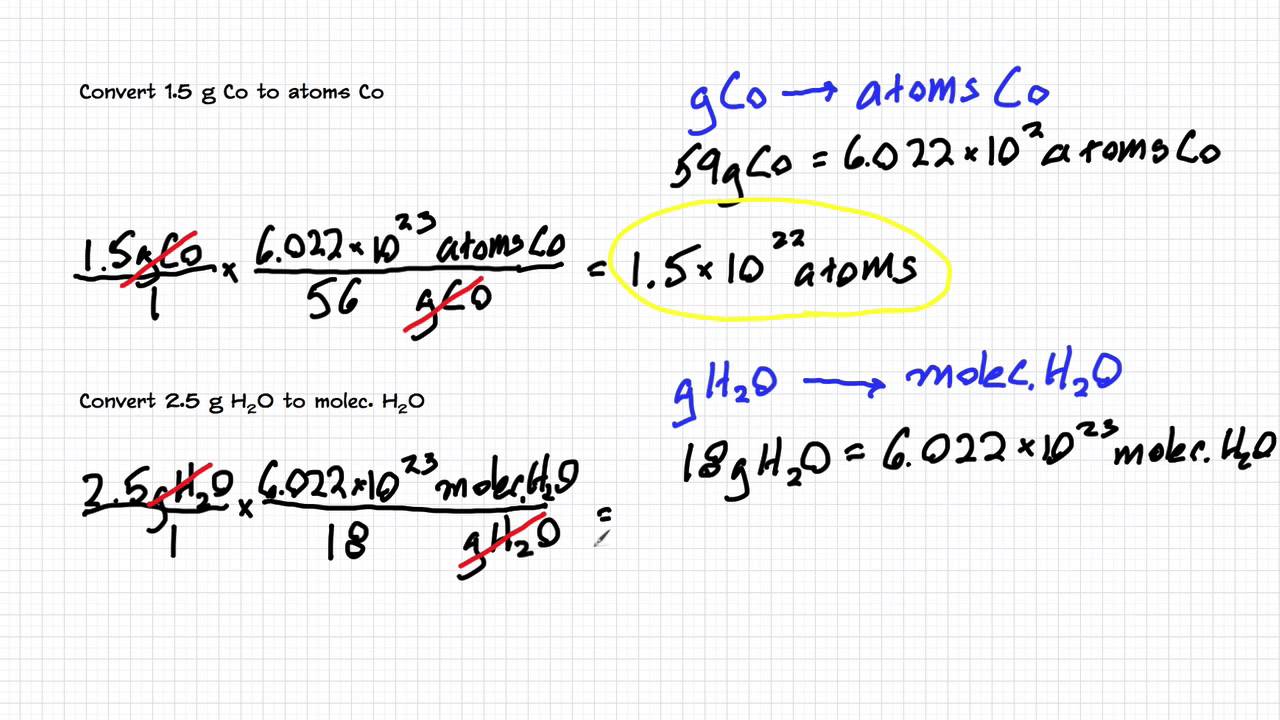 Convert 1.5 g Co to atoms Co
gCo → atoms Co
59gCo = 6.022×10² atoms Co
1.5gCo × 6.022×10²³ atoms Co = 1.5×10²² atoms
1 56 gCo
Convert 2.5 g H₂O to molec. H₂O
gH₂O → molec. H₂O
18gH₂O = 6.022×10²³ molec. H₂O
2.5gH₂O × 6.022×10²³ molec. H₂O =
1 18 gH₂O